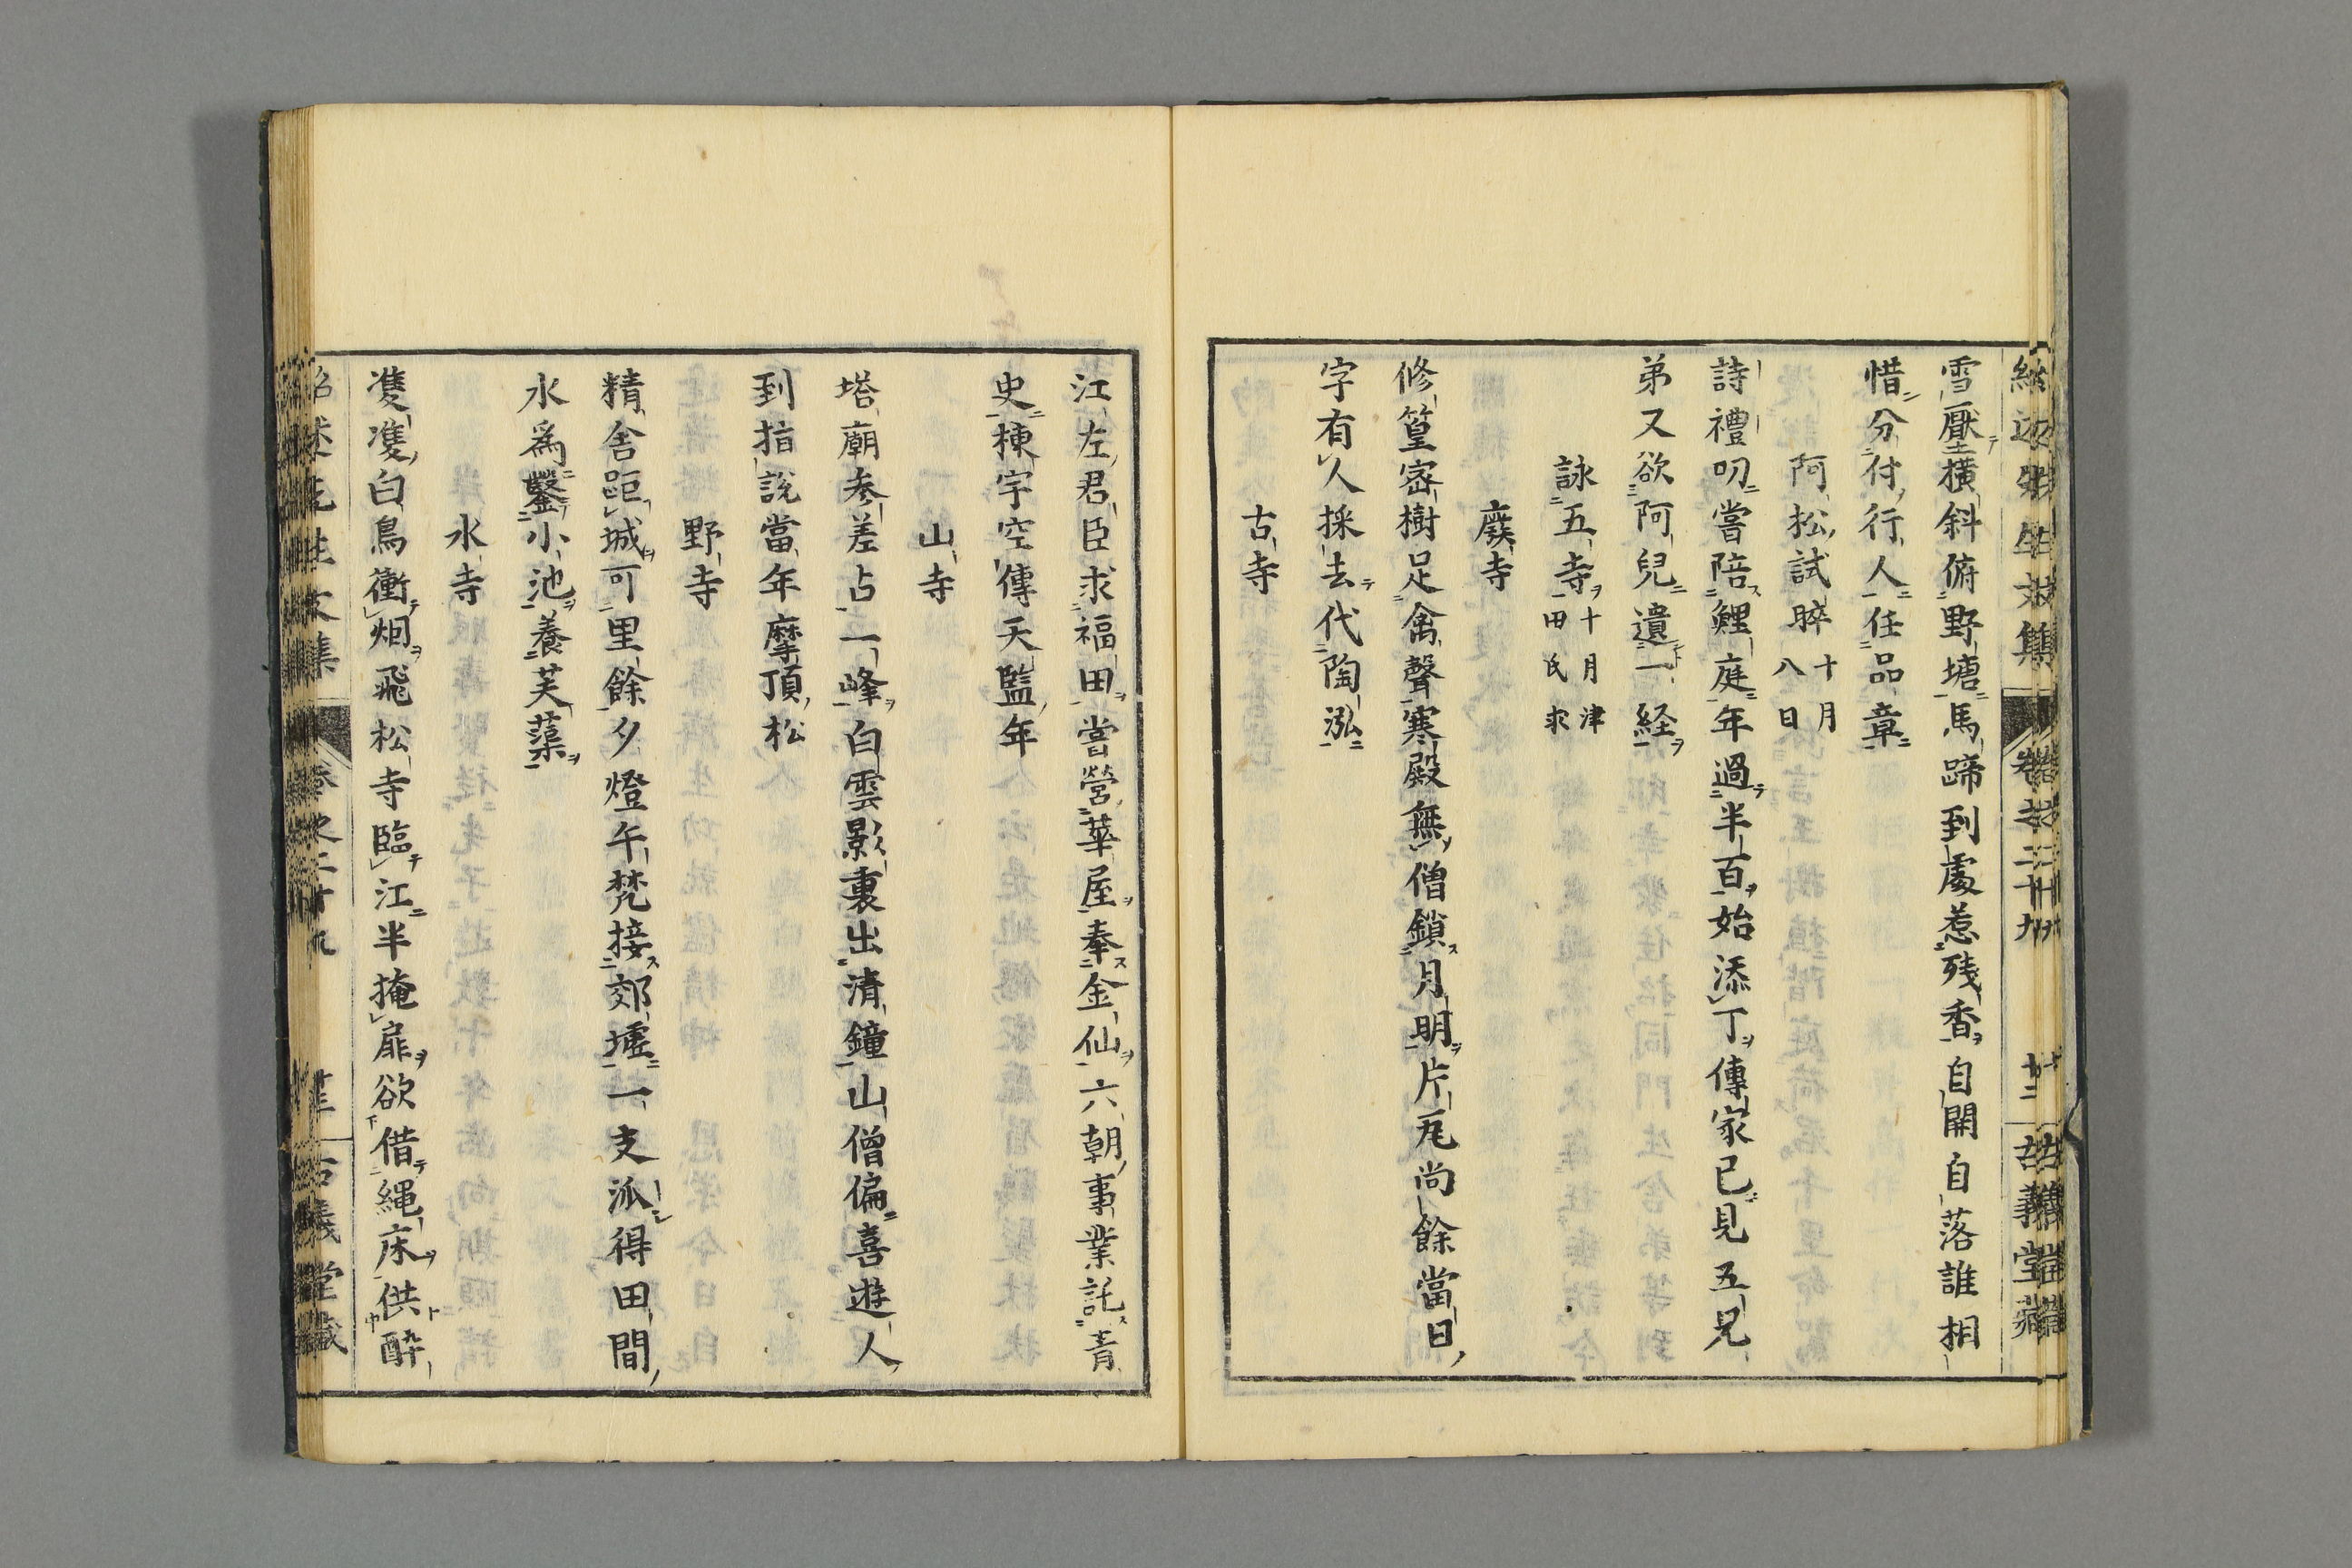 雪壓橫斜俯野塘馬蹄到處惹殘香自開自落誰相
惜分付行人任品章
阿松試晬十月八日
詩禮叨嘗陪鯉庭年過半百始添丁傳家已見五兄
弟又欲阿兒遺一経
詠五寺十月津田氏求
廢寺
修篁密樹足禽聲寒殿無僧鎖月明片瓦尚餘當日
字有人採去代陶泓
古寺
江左君臣求福田嘗營華屋奉金仙六朝事業託青
史棟宇空傳天監年
山寺
塔廟参差占一峰白雲影裏出清鐘山僧偏喜遊人
到指說當年摩頂松
野寺
精舍距城可里餘夕燈午梵接郊墟一支派得田間
水為鑿小池養芙蕖
水寺
隻隻白鳥衝烟飛松寺臨江半掩扉欲借繩床供醉
紹述先生文集 卷之二十九 古義堂藏